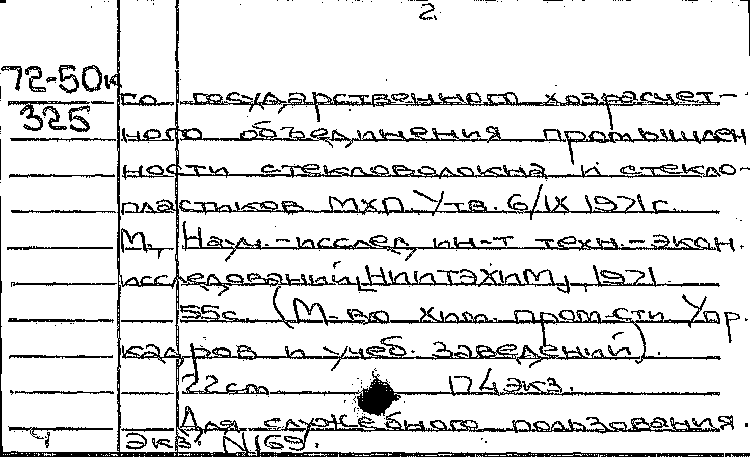 2
72-50к
325
го государственного хозрасчет-
ного объединения промышлен
ности стекловолокна и стекло-
пластиков МХП. Утв. 6/IX 1971 г.
М., Науч.-исслед. ин-т техн.-экон.
исследований "НИИТЭХИМ", 1971
55с. (М-во хим. пром-сти Упр.
кадров и учеб. заведений).
22 cm 174 экз.
Для служебного пользования.
Экз. N169.
Ч